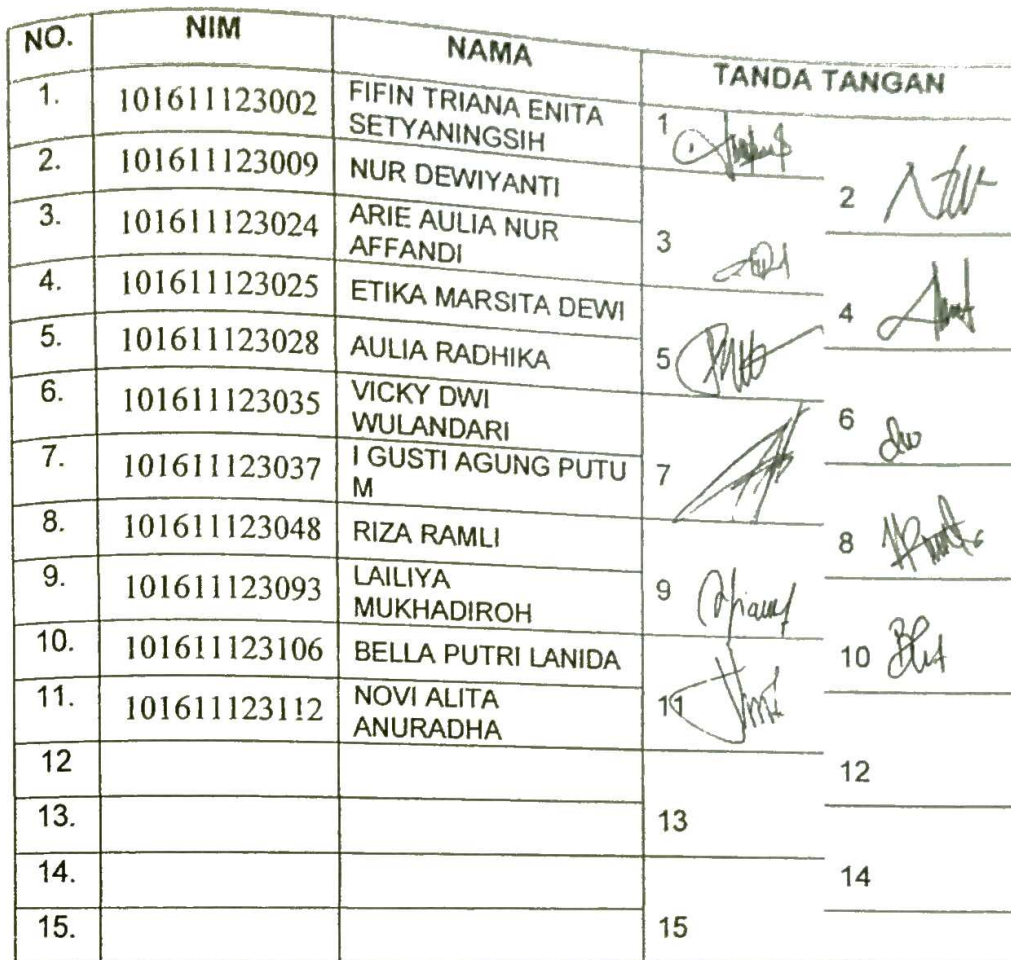 NO. NIM NAMA TANDA TANGAN
1. 101611123002 FIFIN TRIANA ENITA
SETYANINGSIH 1
2. 101611123009 NUR DEWIYANTI 2
3. 101611123024 ARIE AULIA NUR
AFFANDI 3
4. 101611123025 ETIKA MARSITA DEWI 4
5. 101611123028 AULIA RADHIKA 5
6. 101611123035 VICKY DWI
WULANDARI 6
7. 101611123037 I GUSTI AGUNG PUTU
M 7
8. 101611123048 RIZA RAMLI 8
9. 101611123093 LAILIYA
MUKHADIROH 9
10. 101611123106 BELLA PUTRI LANIDA 10
11. 101611123112 NOVI ALITA
ANURADHA 11
12 12
13. 13
14. 14
15. 15